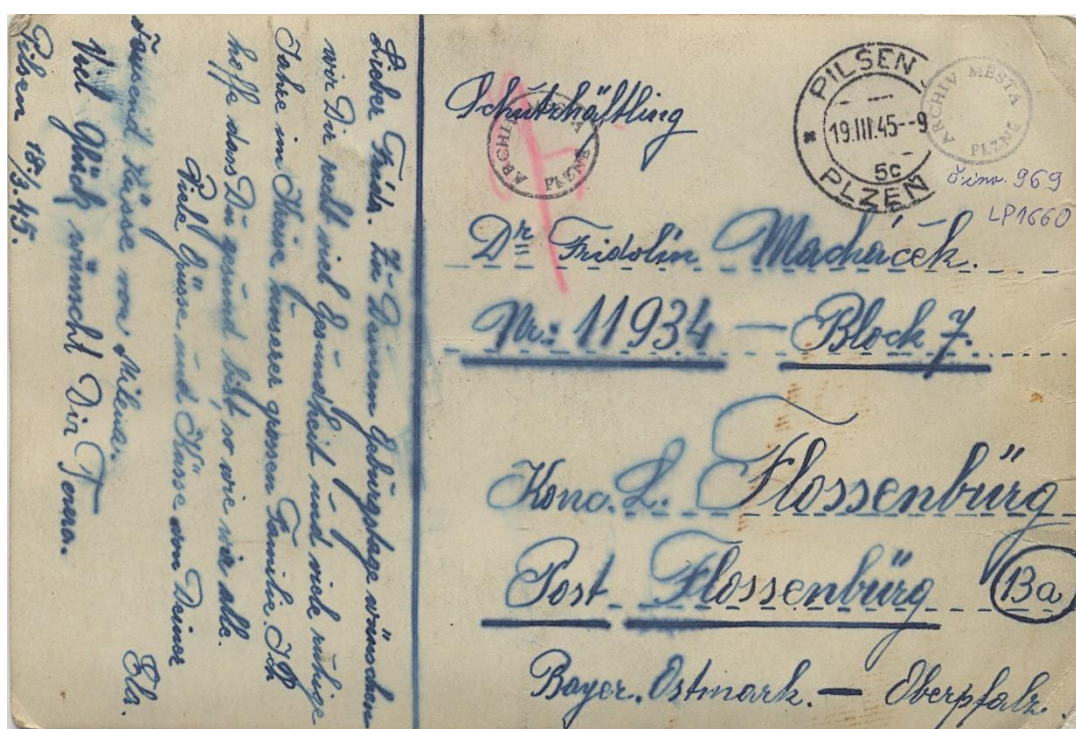 Lieber Frída. Zu Deinem Geburgstage wünschen
wir Dir recht viel Gesundheit und viele ruhige
Jahre in Kreise unserer grossen Familie. Ich
hoffe dass Du gesund bist, so wie wir alle.
Viele Grüsse und Küsse von Deiner
Ela.
Tausend Küsse von Milena.
Viel Glück wünscht Dir
Pilsen 18/3.45.
Schutzhäftling
ARCHIV MĚSTA PLZNĚ
PILSEN
19.III.45--9
5c
PLZEŇ
ARCHIV MĚSTA PLZNĚ
č.inv. 969
LP1660
Dr Fridolín Macháček.
Nr: 11934 — Block 7.
Konc. L. Flossenbürg
Post Flossenbürg 13a
Bayer. Ostmark. — Oberpfalz.